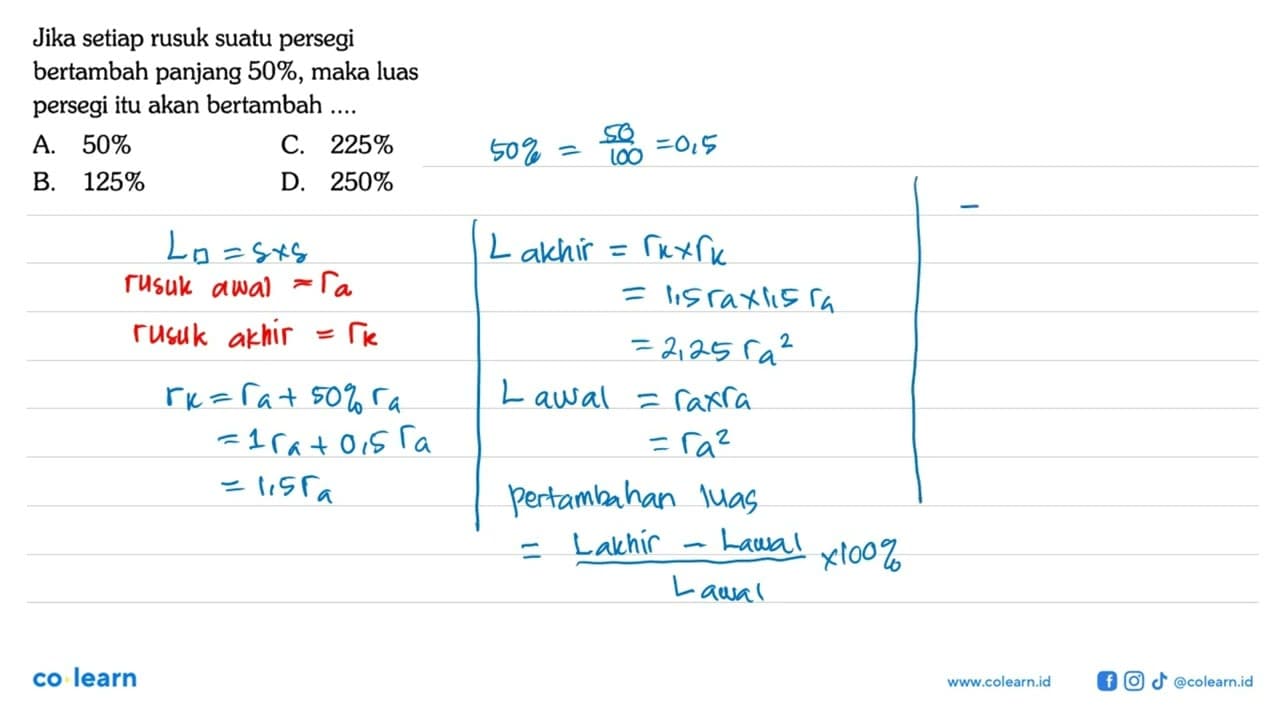 Jika setiap rusuk suatu persegi
bertambah panjang 50%, maka luas
persegi itu akan bertambah ....
A. 50% C. 225%
B. 125% D. 250%
50% = 50/100 = 0,5
L□ = s×s
rusuk awal = ra
rusuk akhir = rk
rk = ra + 50% ra
= 1 ra + 0,5 ra
= 1,5 ra
L akhir = rk × rk
= 1,5 ra × 1,5 ra
= 2,25 ra²
L awal = ra×ra
= ra²
pertambahan luas
= Lakhir − Lawal / Lawal ×100%
−
co learn
www.colearn.id
@colearn.id